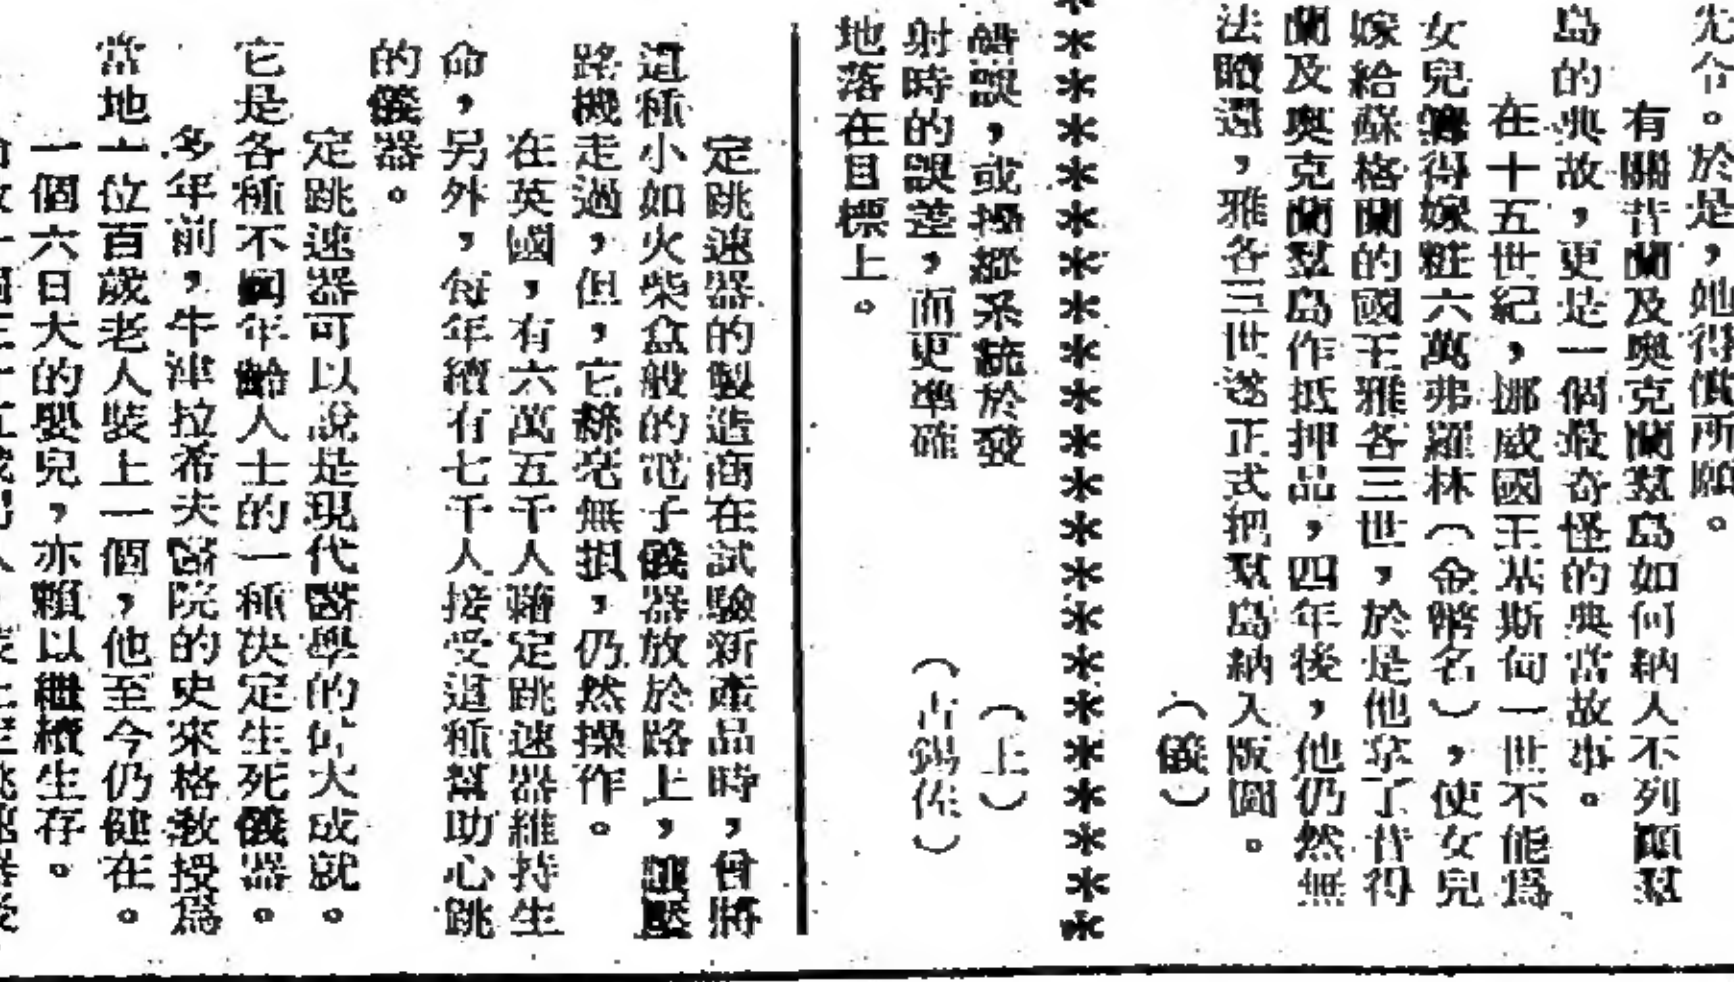 先令。於是,她得償所願。
有關昔蘭及奧克蘭羣島如何納入不列顛羣
島的典故,更是一個最奇怪的典當故事。
在十五世紀,挪威國王基斯甸一世不能爲
女兒籌得嫁粧六萬弗羅林(金幣名),使女兒
嫁給蘇格蘭的國王雅各三世,於是他拿了昔得
蘭及奧克蘭羣島作抵押品,四年後,他仍然無
法贖還,雅各三世遂正式把羣島納入版圖。
(儀)
******************
錯誤,或操縱系統於發
射時的誤差,而更準確
地落在目標上。
(上)
(古錫佐)
定跳速器的製造商在試驗新產品時,曾將
這種小如火柴盒般的電子儀器放於路上,讓壓
路機走過,但,它絲毫無損,仍然操作。
在英國,有六萬五千人藉定跳速器維持生
命,另外,每年續有七千人接受這種幫助心跳
的儀器。
定跳速器可以說是現代醫學的偉大成就。
它是各種不同年齡人士的一種決定生死儀器。
多年前,牛津拉希夫醫院的史來格教授爲
當地一位百歲老人裝上一個,他至今仍健在。
一個六日大的嬰兒,亦賴以繼續生存。